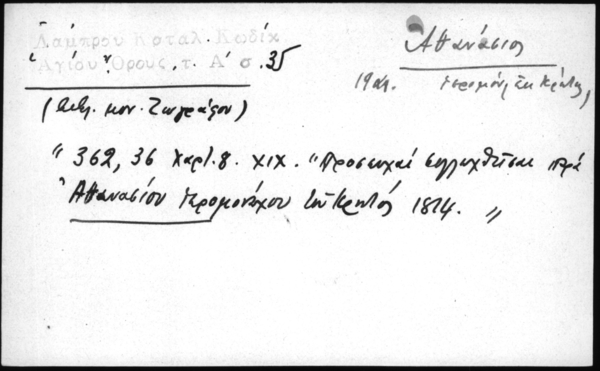 Λάμπρου Καταλ. Κωδίκ
Ἁγίου Ὄρους, τ. Α' σ. 35
Ἀθανάσιος
19 αι. ἱερομόν. ἐκ Κρήτης
(Βιβλ. μον. Ζωγράφου)
" 362, 36 χαρτ. 8. XIX. "Προσευχαὶ συλλεχθεῖσαι παρὰ
Ἀθανασίου ἱερομονάχου ἐκ Κρητός 1814. "